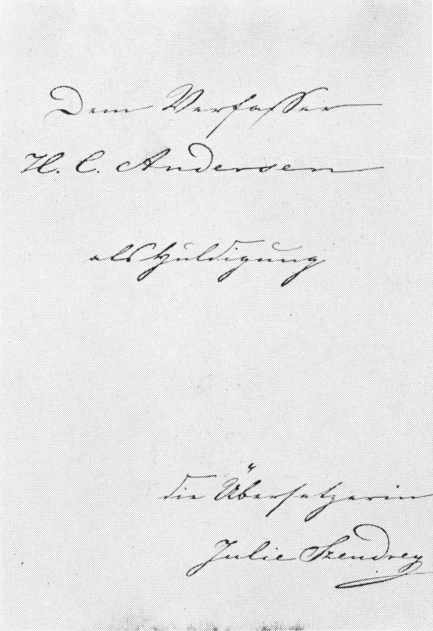 Dem Verfasser
H. C. Andersen
als Huldigung
die Übersetzerin
Julie Szendrey